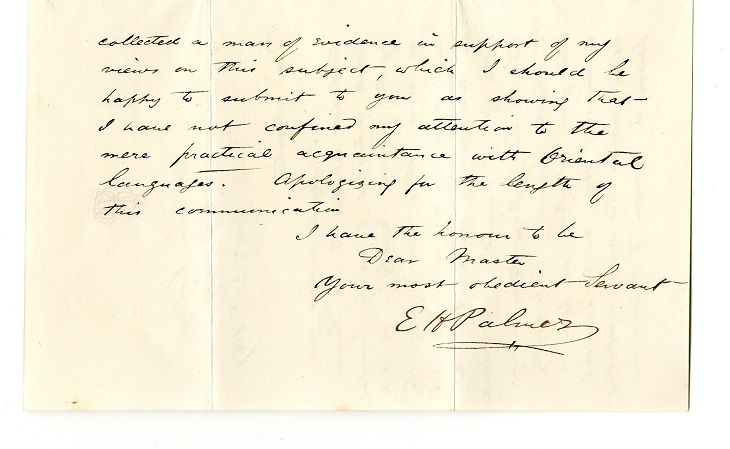 collected a mass of evidence in support of my
views on this subject, which I should be
happy to submit to you as showing that
I have not confined my attention to the
mere practical acquaintance with Oriental
languages. Apologizing for the length of
this communication
I have the honour to be
Dear Master
Your most obedient Servant
E H Palmer